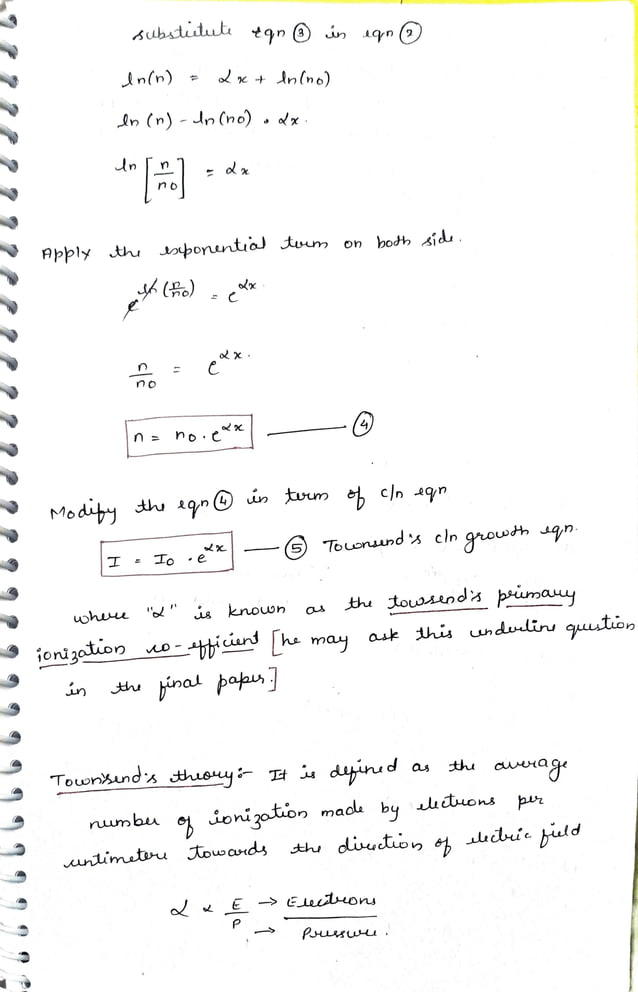 substitute eqn ③ in eqn ②
ln(n) = αx + ln(no)
ln(n) - ln(no) = αx.
ln [n/no] = αx
Apply the exponential term on both side.
e^ln(n/no) = e^αx.
n/no = e^αx.
n = no.e^αx —— ④
Modify the eqn ④ in term of c/n eqn
I = Io .e^αx —— ⑤ Townsend's c/n growth eqn.
where "α" is known as the towsend's primary
ionization co-efficient [he may ask this underline question
in the final paper.]
Townsend's theory:- It is defined as the average
number of ionization made by electrons per
centimetere towards the direction of electric field
α α E/P → Electrons
→ Pressure.